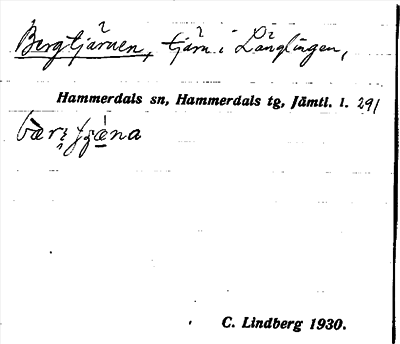 Bergtjärnen, tjärn i Långlingen,
Hammerdals sn, Hammerdals tg, Jämtl. l. 291
C. Lindberg 1930.